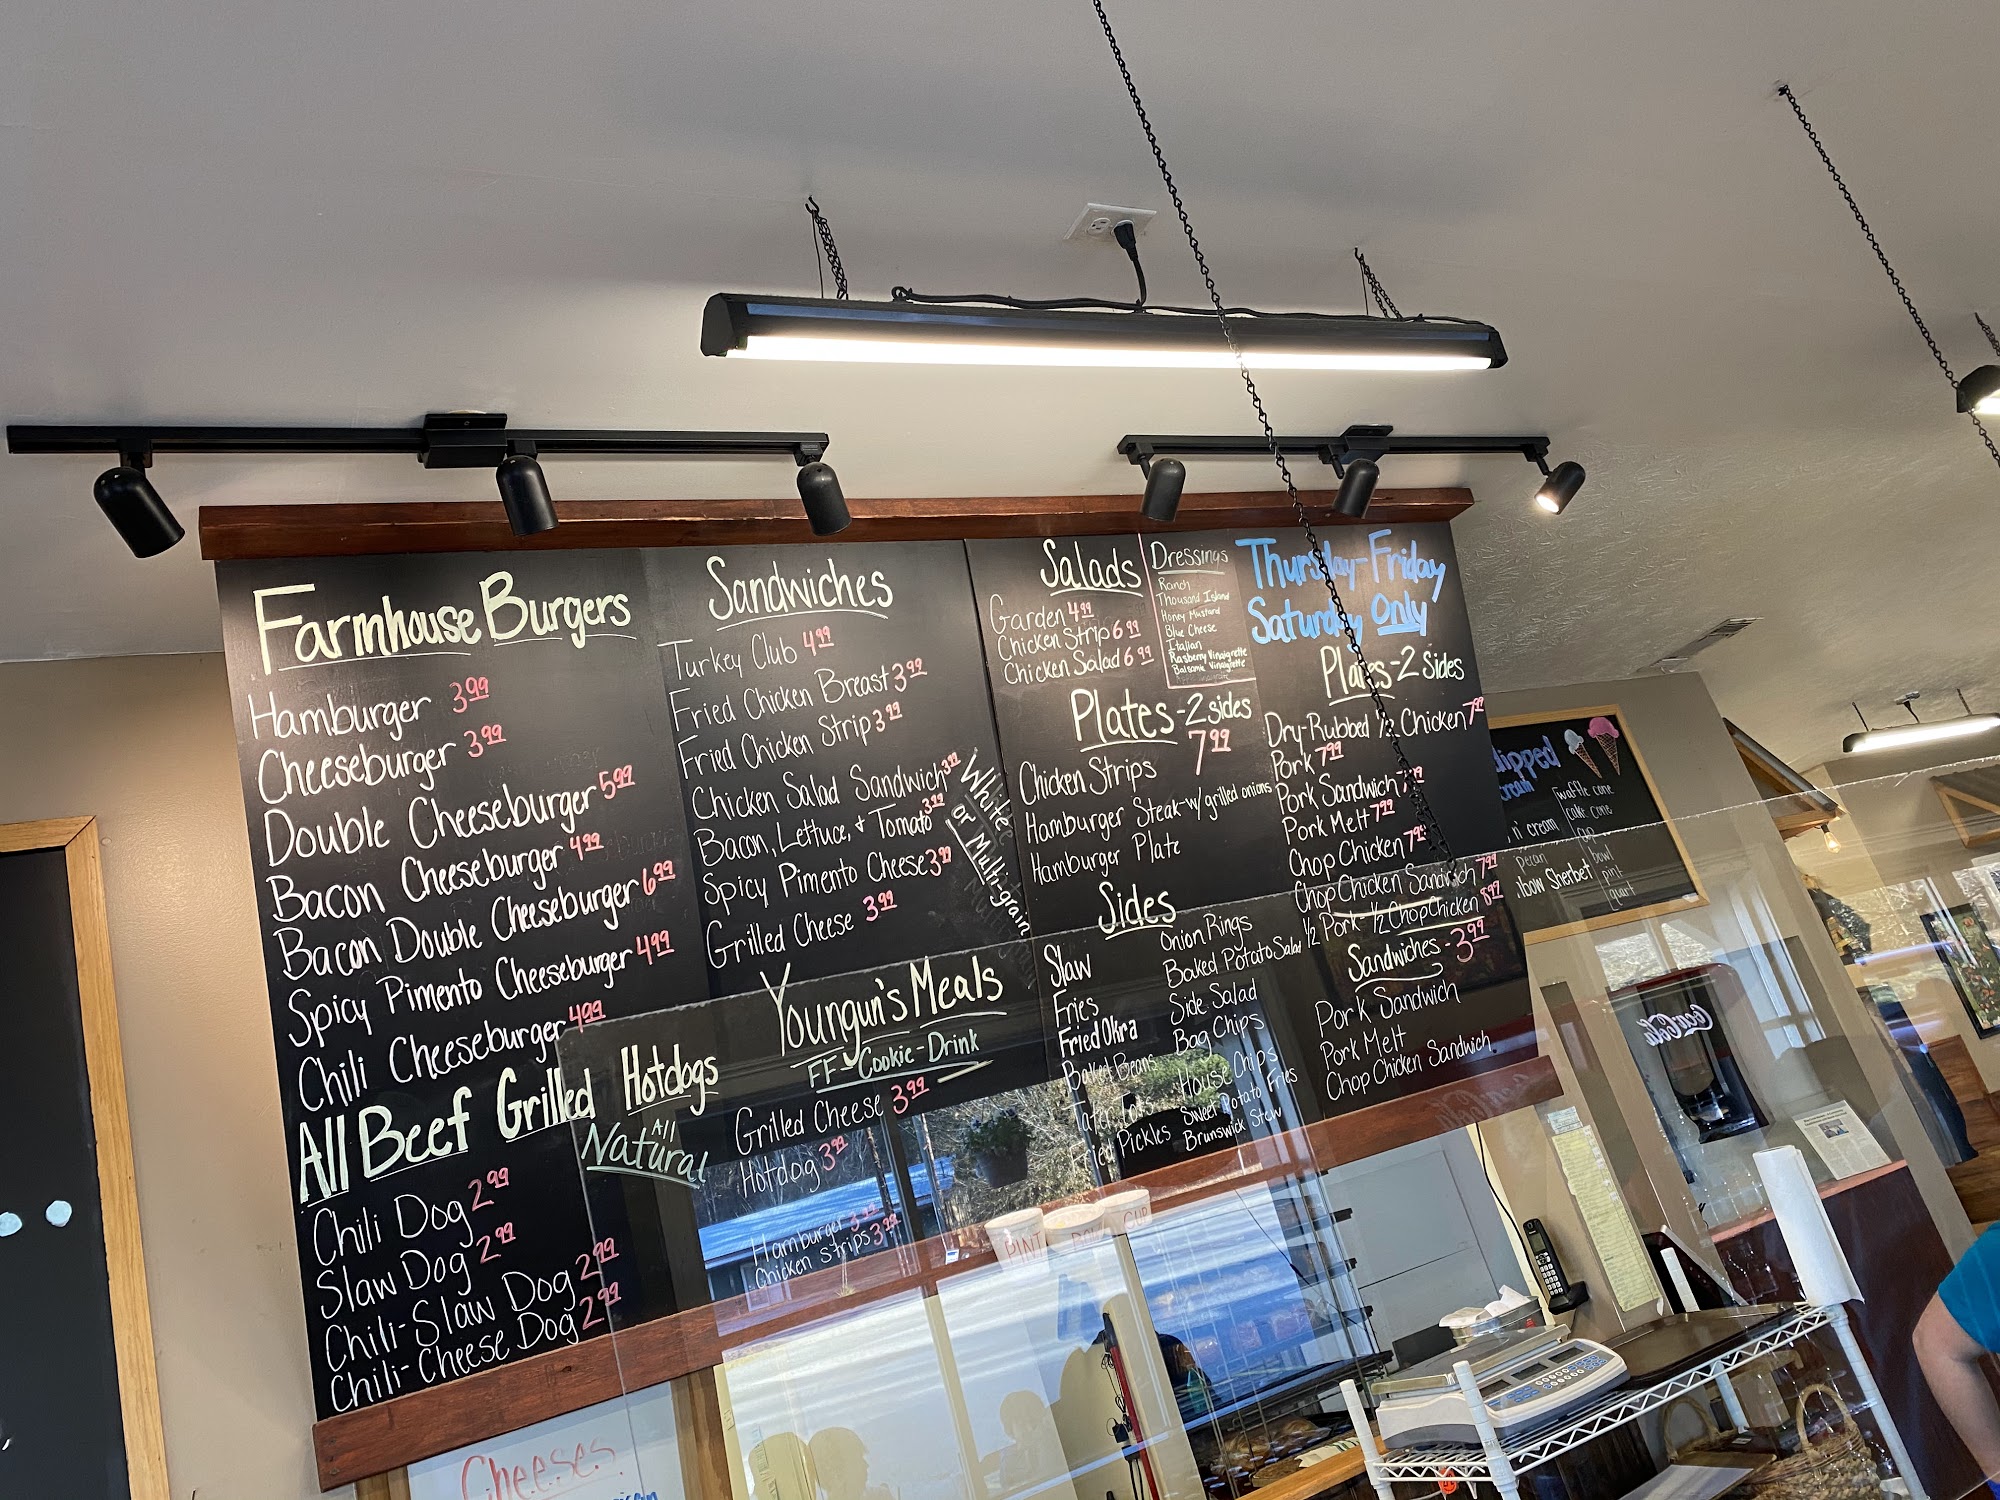 Farmhouse Burgers
Hamburger 3.99
Cheeseburger 3.99
Double Cheeseburger 5.99
Bacon Cheeseburger 4.99
Bacon Double Cheeseburger 6.99
Spicy Pimento Cheeseburger 4.99
Chili Cheeseburger 4.99
All Beef Grilled Hotdogs
All
Natural
Chili Dog 2.99
Slaw Dog 2.99
Chili-Slaw Dog 2.99
Chili-Cheese Dog 2.99
Sandwiches
Turkey Club 4.99
Fried Chicken Breast 3.99
Fried Chicken Strip 3.99
Chicken Salad Sandwich 3.99
Bacon, Lettuce, + Tomato 3.99
Spicy Pimento Cheese 3.99
Grilled Cheese 3.99
White
or Multi-grain
Youngun's Meals
FF-Cookie-Drink
Grilled Cheese 3.99
Hotdog 3.99
Hamburger 3.99
Chicken Strips 3.99
Salads
Garden 4.99
Chicken Strip 6.99
Chicken Salad 6.99
Dressings
Ranch
Thousand Island
Honey Mustard
Blue Cheese
Italian
Rasberry Vinaigrette
Balsamic Vinaigrette
Plates-2 sides
7.99
Chicken Strips
Hamburger Steak-w/grilled onions
Hamburger Plate
Sides
Slaw
Fries
Fried Okra
Baked Beans
Tater Tots
Fried Pickles
Onion Rings
Baked Potato Salad
Side Salad
Bag Chips
House Chips
Sweet Potato Fries
Brunswick Stew
Thursday-Friday
Saturday Only
Plates-2 Sides
Dry-Rubbed ½ Chicken 7.99
Pork 7.99
Pork Sandwich 7.99
Pork Melt 7.99
Chop Chicken 7.99
Chop Chicken Sandwich 7.99
½ Pork-½ Chop Chicken 8.99
Sandwiches-3.99
Pork Sandwich
Pork Melt
Chop Chicken Sandwich
dipped
cream
waffle cone
cake cone
cup
bowl
pint
quart
n' cream
pecan
nbow Sherbet
Coca-Cola
PINT
BOWL
CUP
Cheeses